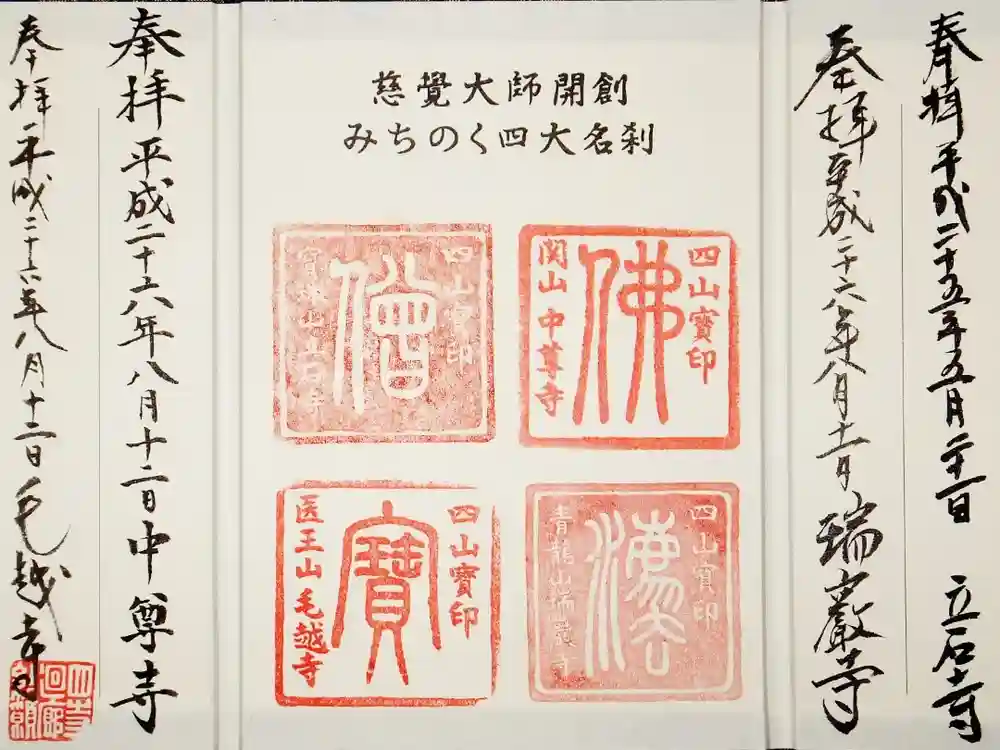 奉拝 平成二十五年五月二十二日 立石寺
奉拝 平成二十六年八月十二日 瑞巌寺
慈覺大師開創
みちのく四大名刹
四山寶印
佛
関山 中尊寺
四山寶印
僧
寶珠山立石寺
四山寶印
法
青龍山瑞巌寺
四山寶印
寶
医王山毛越寺
奉拝 平成二十六年八月十二日 中尊寺
奉拝 平成二十六年八月十二日 毛越寺
四寺
廻廊